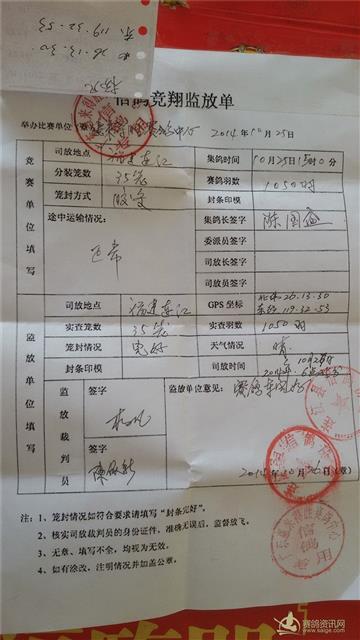 东 119.32.53
北 26.13.30
信鸽竞翔监放单
举办比赛单位(章) 2014年10月25日
竞赛单位填写
司放地点 福建连江 集鸽时间 10月25日15时0分
分装笼数 35笼 赛鸽羽数 1050羽
笼封方式 胶 封条印模
途中运输情况: 正常 集鸽长签字 陈国
委派员签字
司放长签字
司放员签字
监放单位填写
司放地点 福建连江 GPS 坐标 北纬26.13.30 东经119.32.53
实查笼数 35笼 实查羽数 1050羽
笼封情况 完好 天气情况 晴
封条印模 司放时间 2014年10月26日6点
监放裁判员 签字 监放单位意见: 赛鸽
签字 陈
2014年10月26日(章)
注: 1、笼封情况如符合要求请填写“封条完好”。
2、核实司放裁判员的身份证件,准确无误后,监督放飞。
3、无章、填写不全,均视为无效。
4、如有涂改,注明情况并加盖公章。
信鸽
专用
赛鸽资讯网
www.saige.com